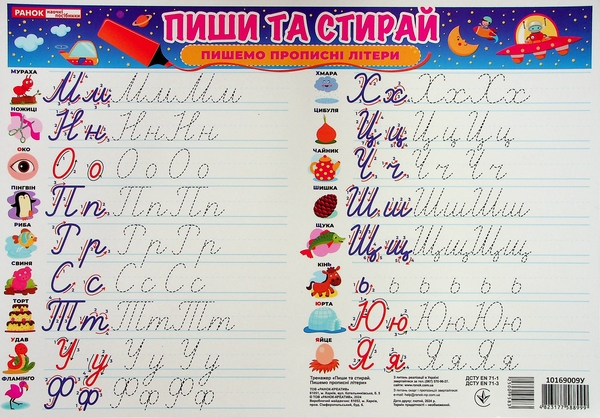 РАНОК
НАОЧНІ
ПОСІБНИКИ
ПИШИ ТА СТИРАЙ
ПИШЕМО ПРОПИСНІ ЛІТЕРИ
МУРАХА
М м М м М м
НОЖИЦІ
Н н Н н Н н
ОКО
О о О о О о
ПІНГВІН
П п П п П п
РИБА
Р р Р р Р р
СВИНЯ
С с С с С с
ТОРТ
Т т Т т Т т
УДАВ
У у У у У у
ФЛАМІНГО
Ф ф Ф ф Ф ф
ХМАРА
Х х Х х Х х
ЦИБУЛЯ
Ц ц Ц ц Ц ц
ЧАЙНИК
Ч ч Ч ч Ч ч
ШИШКА
Ш ш Ш ш Ш ш
ЩУКА
Щ щ Щ щ Щ щ
КІНЬ
ь ь ь ь ь ь
ЮРТА
Ю ю Ю ю Ю ю
ЯЙЦЕ
Я я Я я Я я
Тренажер «Пиши та стирай.
Пишемо прописні літери»
ДСТУ EN 71-1
ДСТУ EN 71-3
10169009У